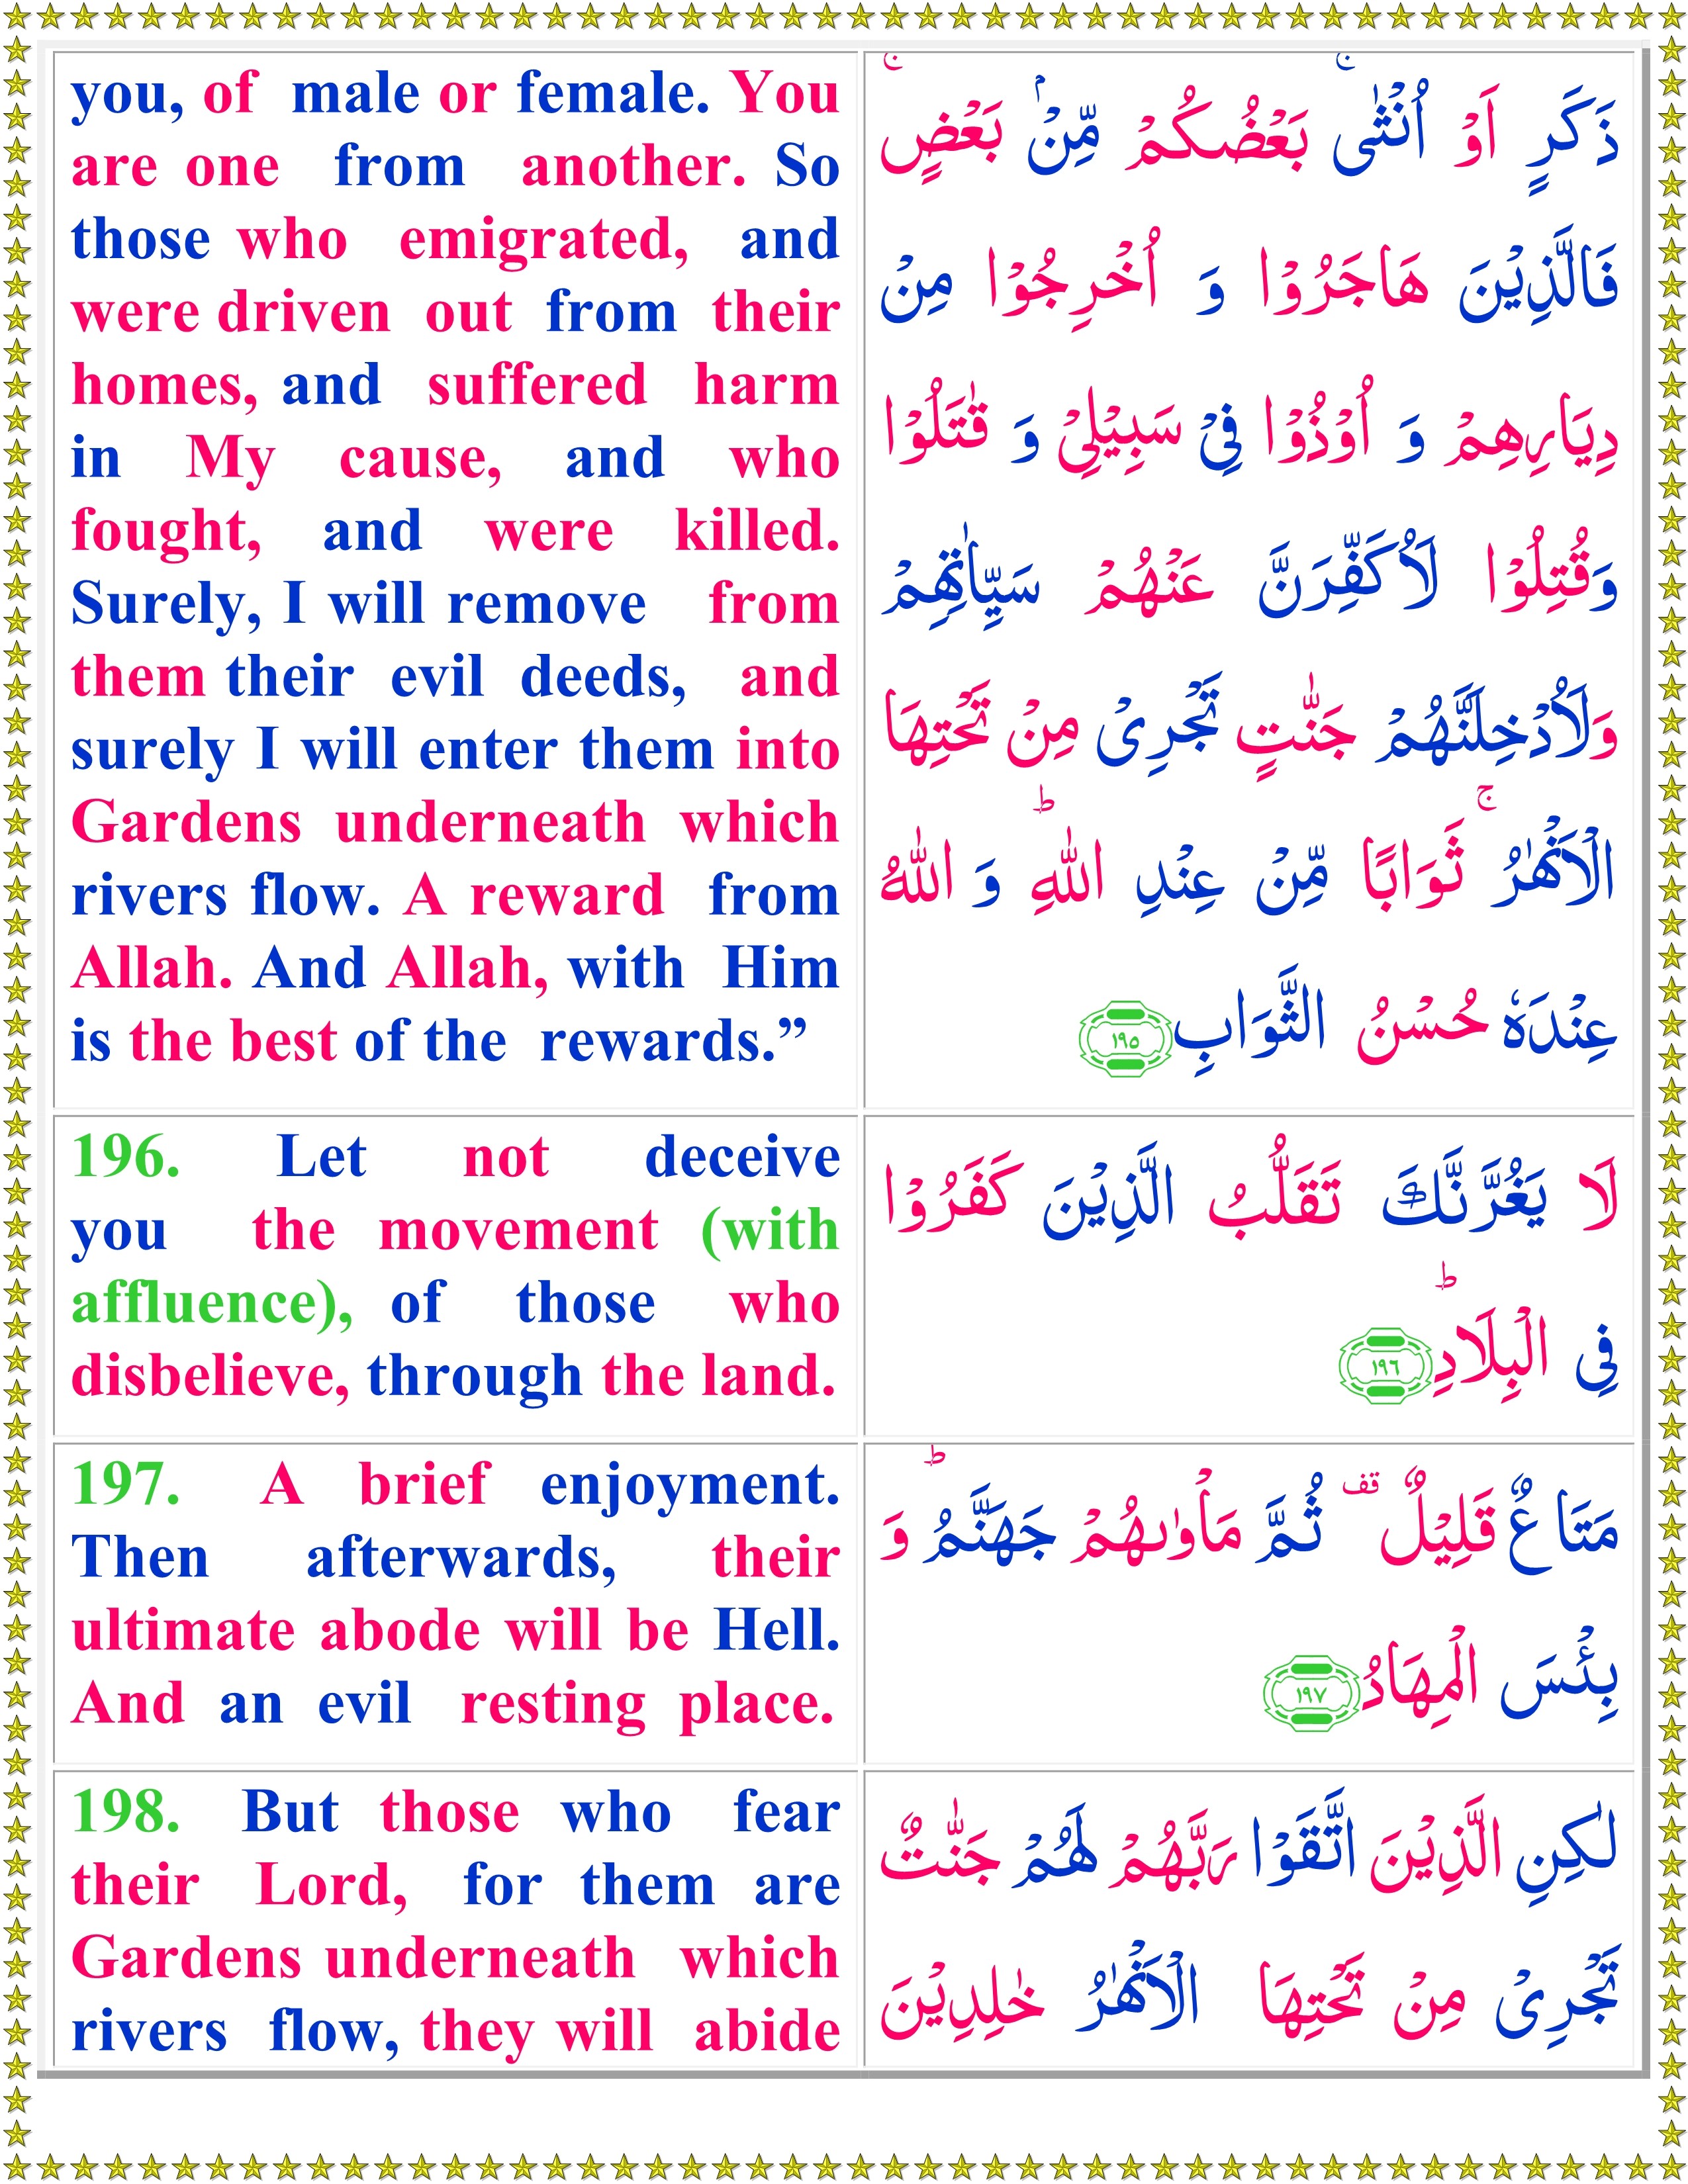 you, of male or female. You
are one from another. So
those who emigrated, and
were driven out from their
homes, and suffered harm
in My cause, and who
fought, and were killed.
Surely, I will remove from
them their evil deeds, and
surely I will enter them into
Gardens underneath which
rivers flow. A reward from
Allah. And Allah, with Him
is the best of the rewards.”
ذَكَرٍ اَوْ اُنْثٰىۚ بَعْضُكُمْ مِّنْۢ بَعْضٍۚ
فَالَّذِيْنَ هَاجَرُوْا وَ اُخْرِجُوْا مِنْ
دِيَارِهِمْ وَ اُوْذُوْا فِىْ سَبِيْلِىْ وَ قٰتَلُوْا
وَقُتِلُوْا لَاُكَفِّرَنَّ عَنْهُمْ سَيِّاٰتِهِمْ
وَلَاُدْخِلَنَّهُمْ جَنّٰتٍ تَجْرِىْ مِنْ تَحْتِهَا
الْاَنْهٰرُۚ ثَوَابًا مِّنْ عِنْدِ اللّٰهِؕ وَ اللّٰهُ
عِنْدَهٗ حُسْنُ الثَّوَابِ ١٩٥
196. Let not deceive
you the movement (with
affluence), of those who
disbelieve, through the land.
لَا يَغُرَّنَّكَ تَقَلُّبُ الَّذِيْنَ كَفَرُوْا
فِى الْبِلَادِؕ ١٩٦
197. A brief enjoyment.
Then afterwards, their
ultimate abode will be Hell.
And an evil resting place.
مَتَاعٌ قَلِيْلٌ قف ثُمَّ مَاْوٰٮهُمْ جَهَنَّمُؕ وَ
بِئْسَ الْمِهَادُ ١٩٧
198. But those who fear
their Lord, for them are
Gardens underneath which
rivers flow, they will abide
لٰكِنِ الَّذِيْنَ اتَّقَوْا رَبَّهُمْ لَهُمْ جَنّٰتٌ
تَجْرِىْ مِنْ تَحْتِهَا الْاَنْهٰرُ خٰلِدِيْنَ